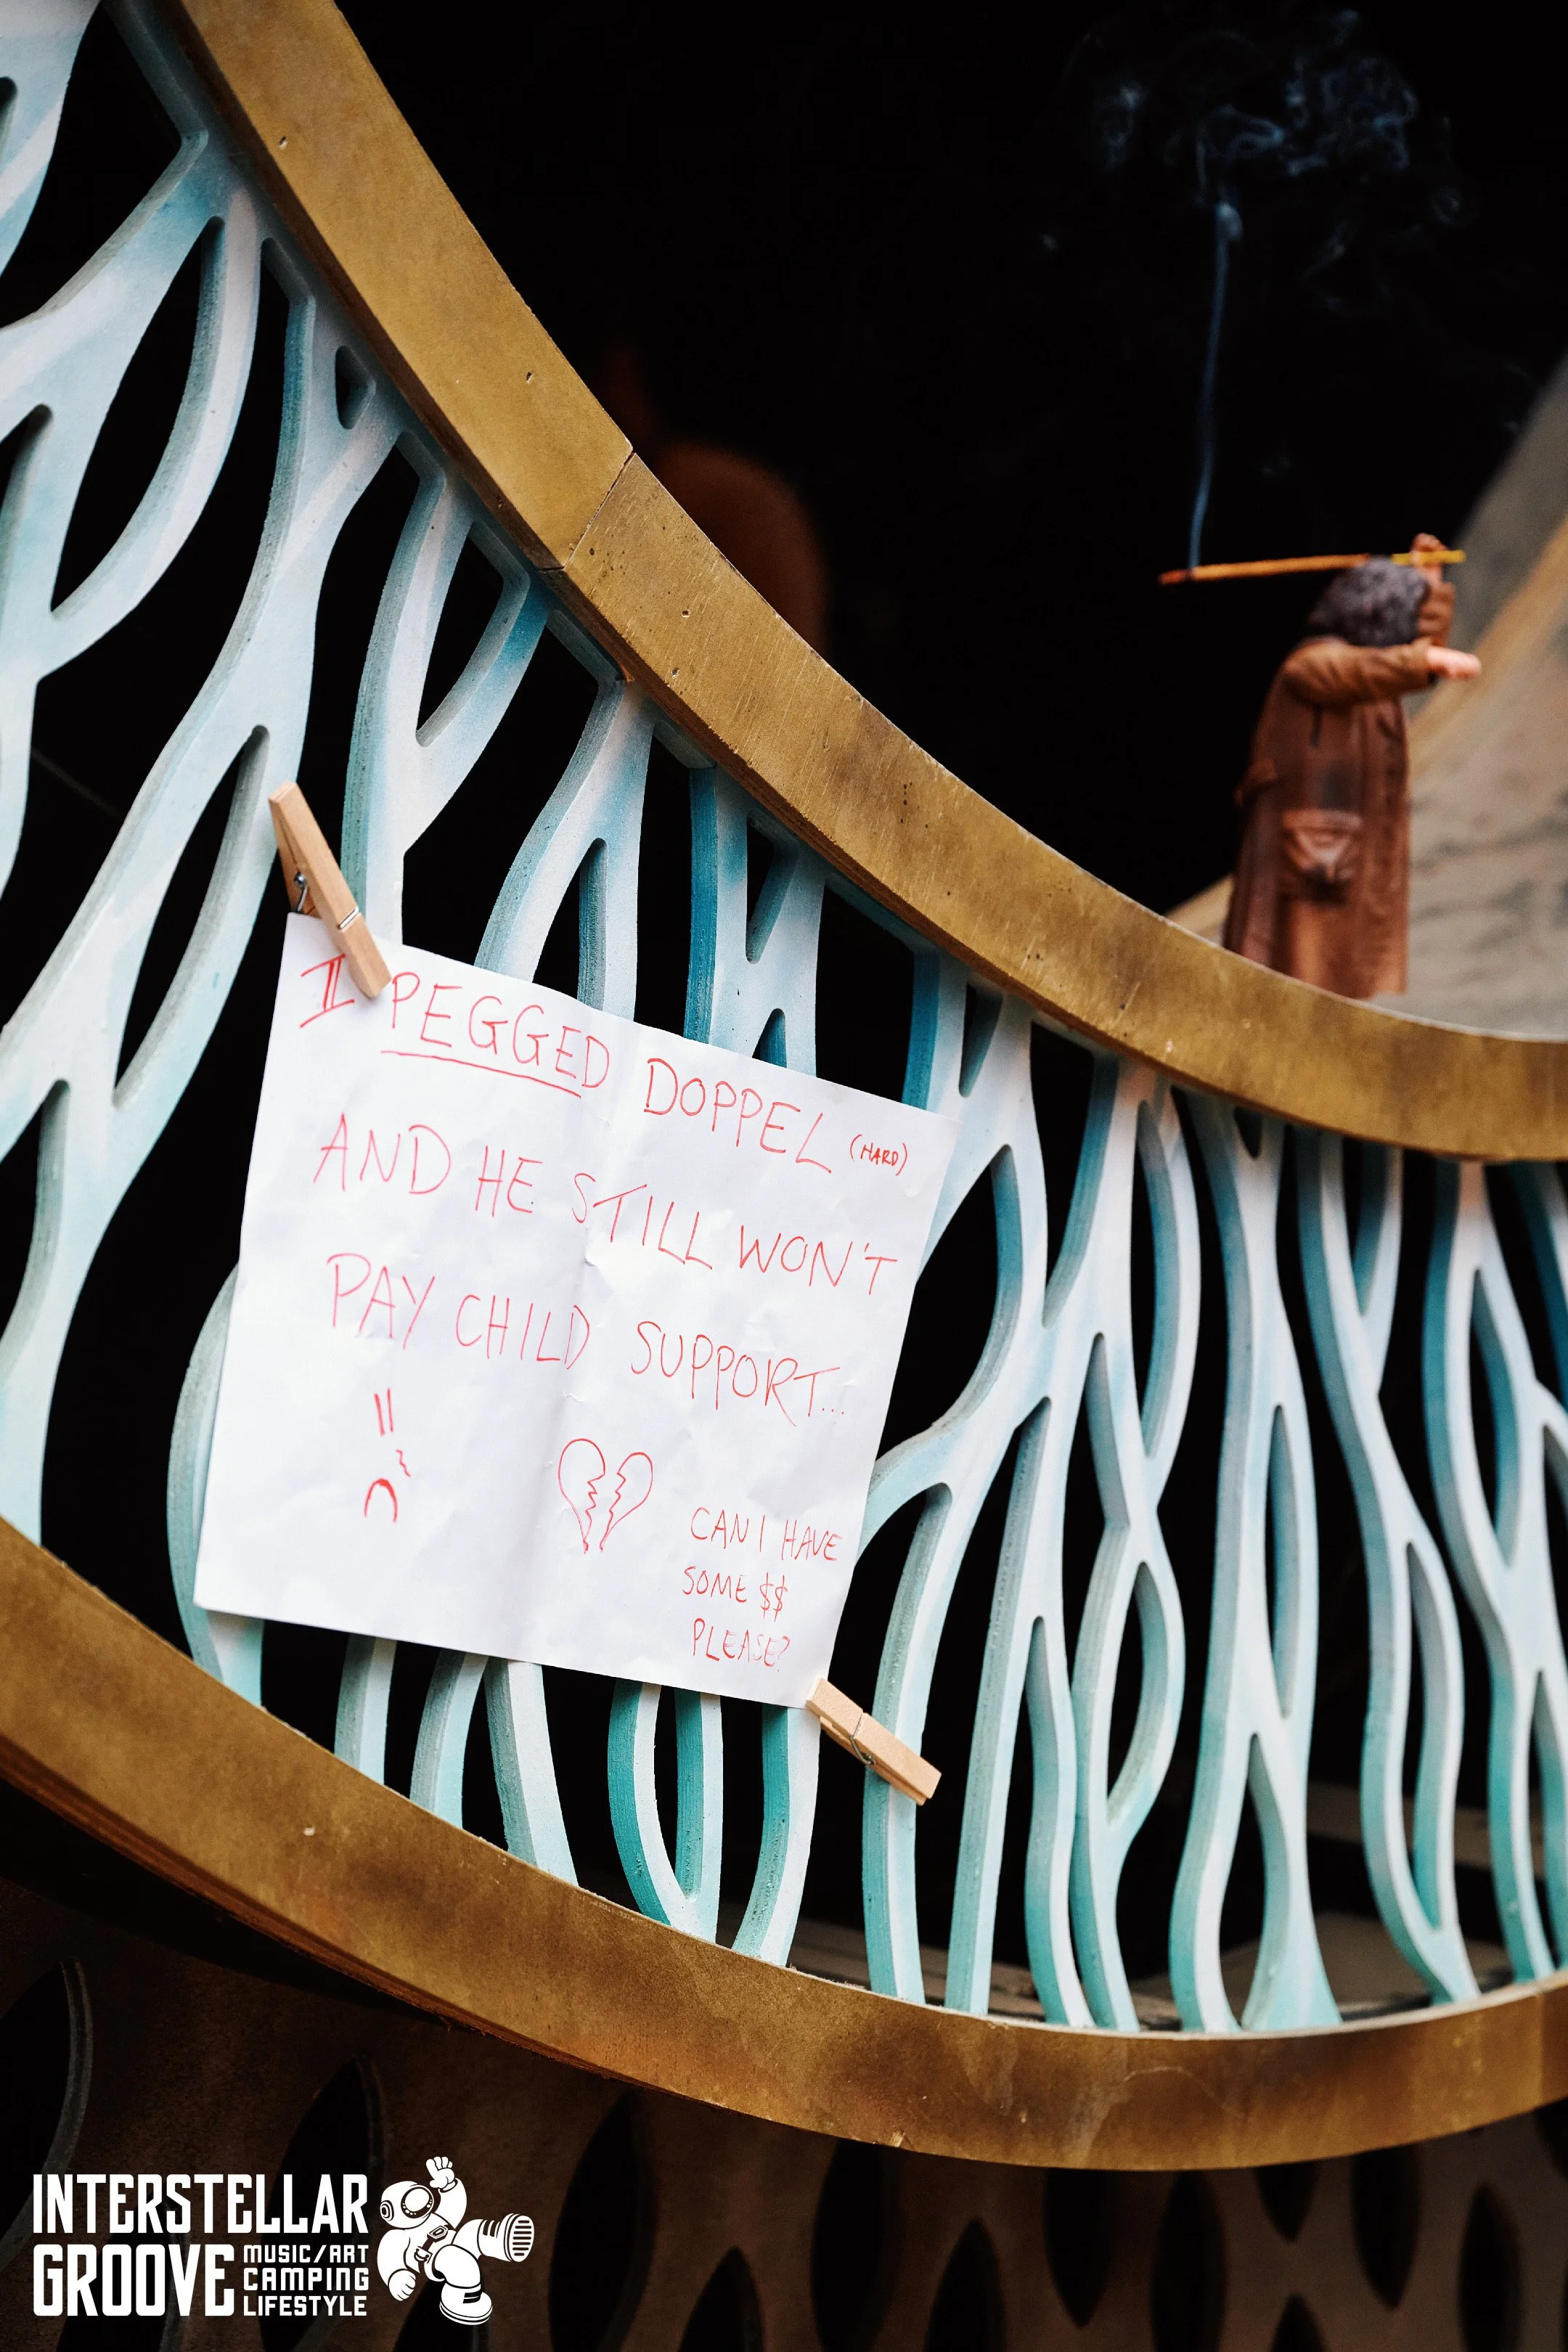 I PEGGED DOPPEL (HARD)
AND HE STILL WON'T
PAY CHILD SUPPORT...
CAN I HAVE
SOME $$
PLEASE?
INTERSTELLAR
GROOVE
MUSIC/ART
CAMPING
LIFESTYLE